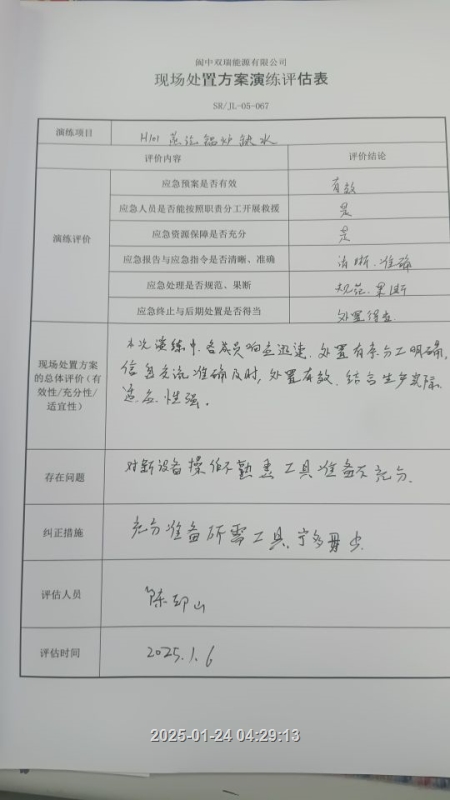 阆中双瑞能源有限公司
现场处置方案演练评估表
SR/JL-05-067
演练项目 H101 蒸汽锅炉缺水
评价内容 评价结论
演练评价
应急预案是否有效 有效
应急人员是否能按照职责分工开展救援 是
应急资源保障是否充分 是
应急报告与应急指令是否清晰、准确 清晰、准确
应急处理是否规范、果断 规范、果断
应急终止与后期处置是否得当 处置得当
现场处置方案
的总体评价（有
效性/充分性/
适宜性）
本次演练中各成员响应迅速、处置有序分工明确，
信息交流准确及时，处置有效、结合生产实际
适应性强。
存在问题 对新设备操作不熟悉 工具准备不充分.
纠正措施 充分准备所需工具,宁多毋少
评估人员 陈
山
评估时间 2025.1.6
2025-01-24 04:29:13